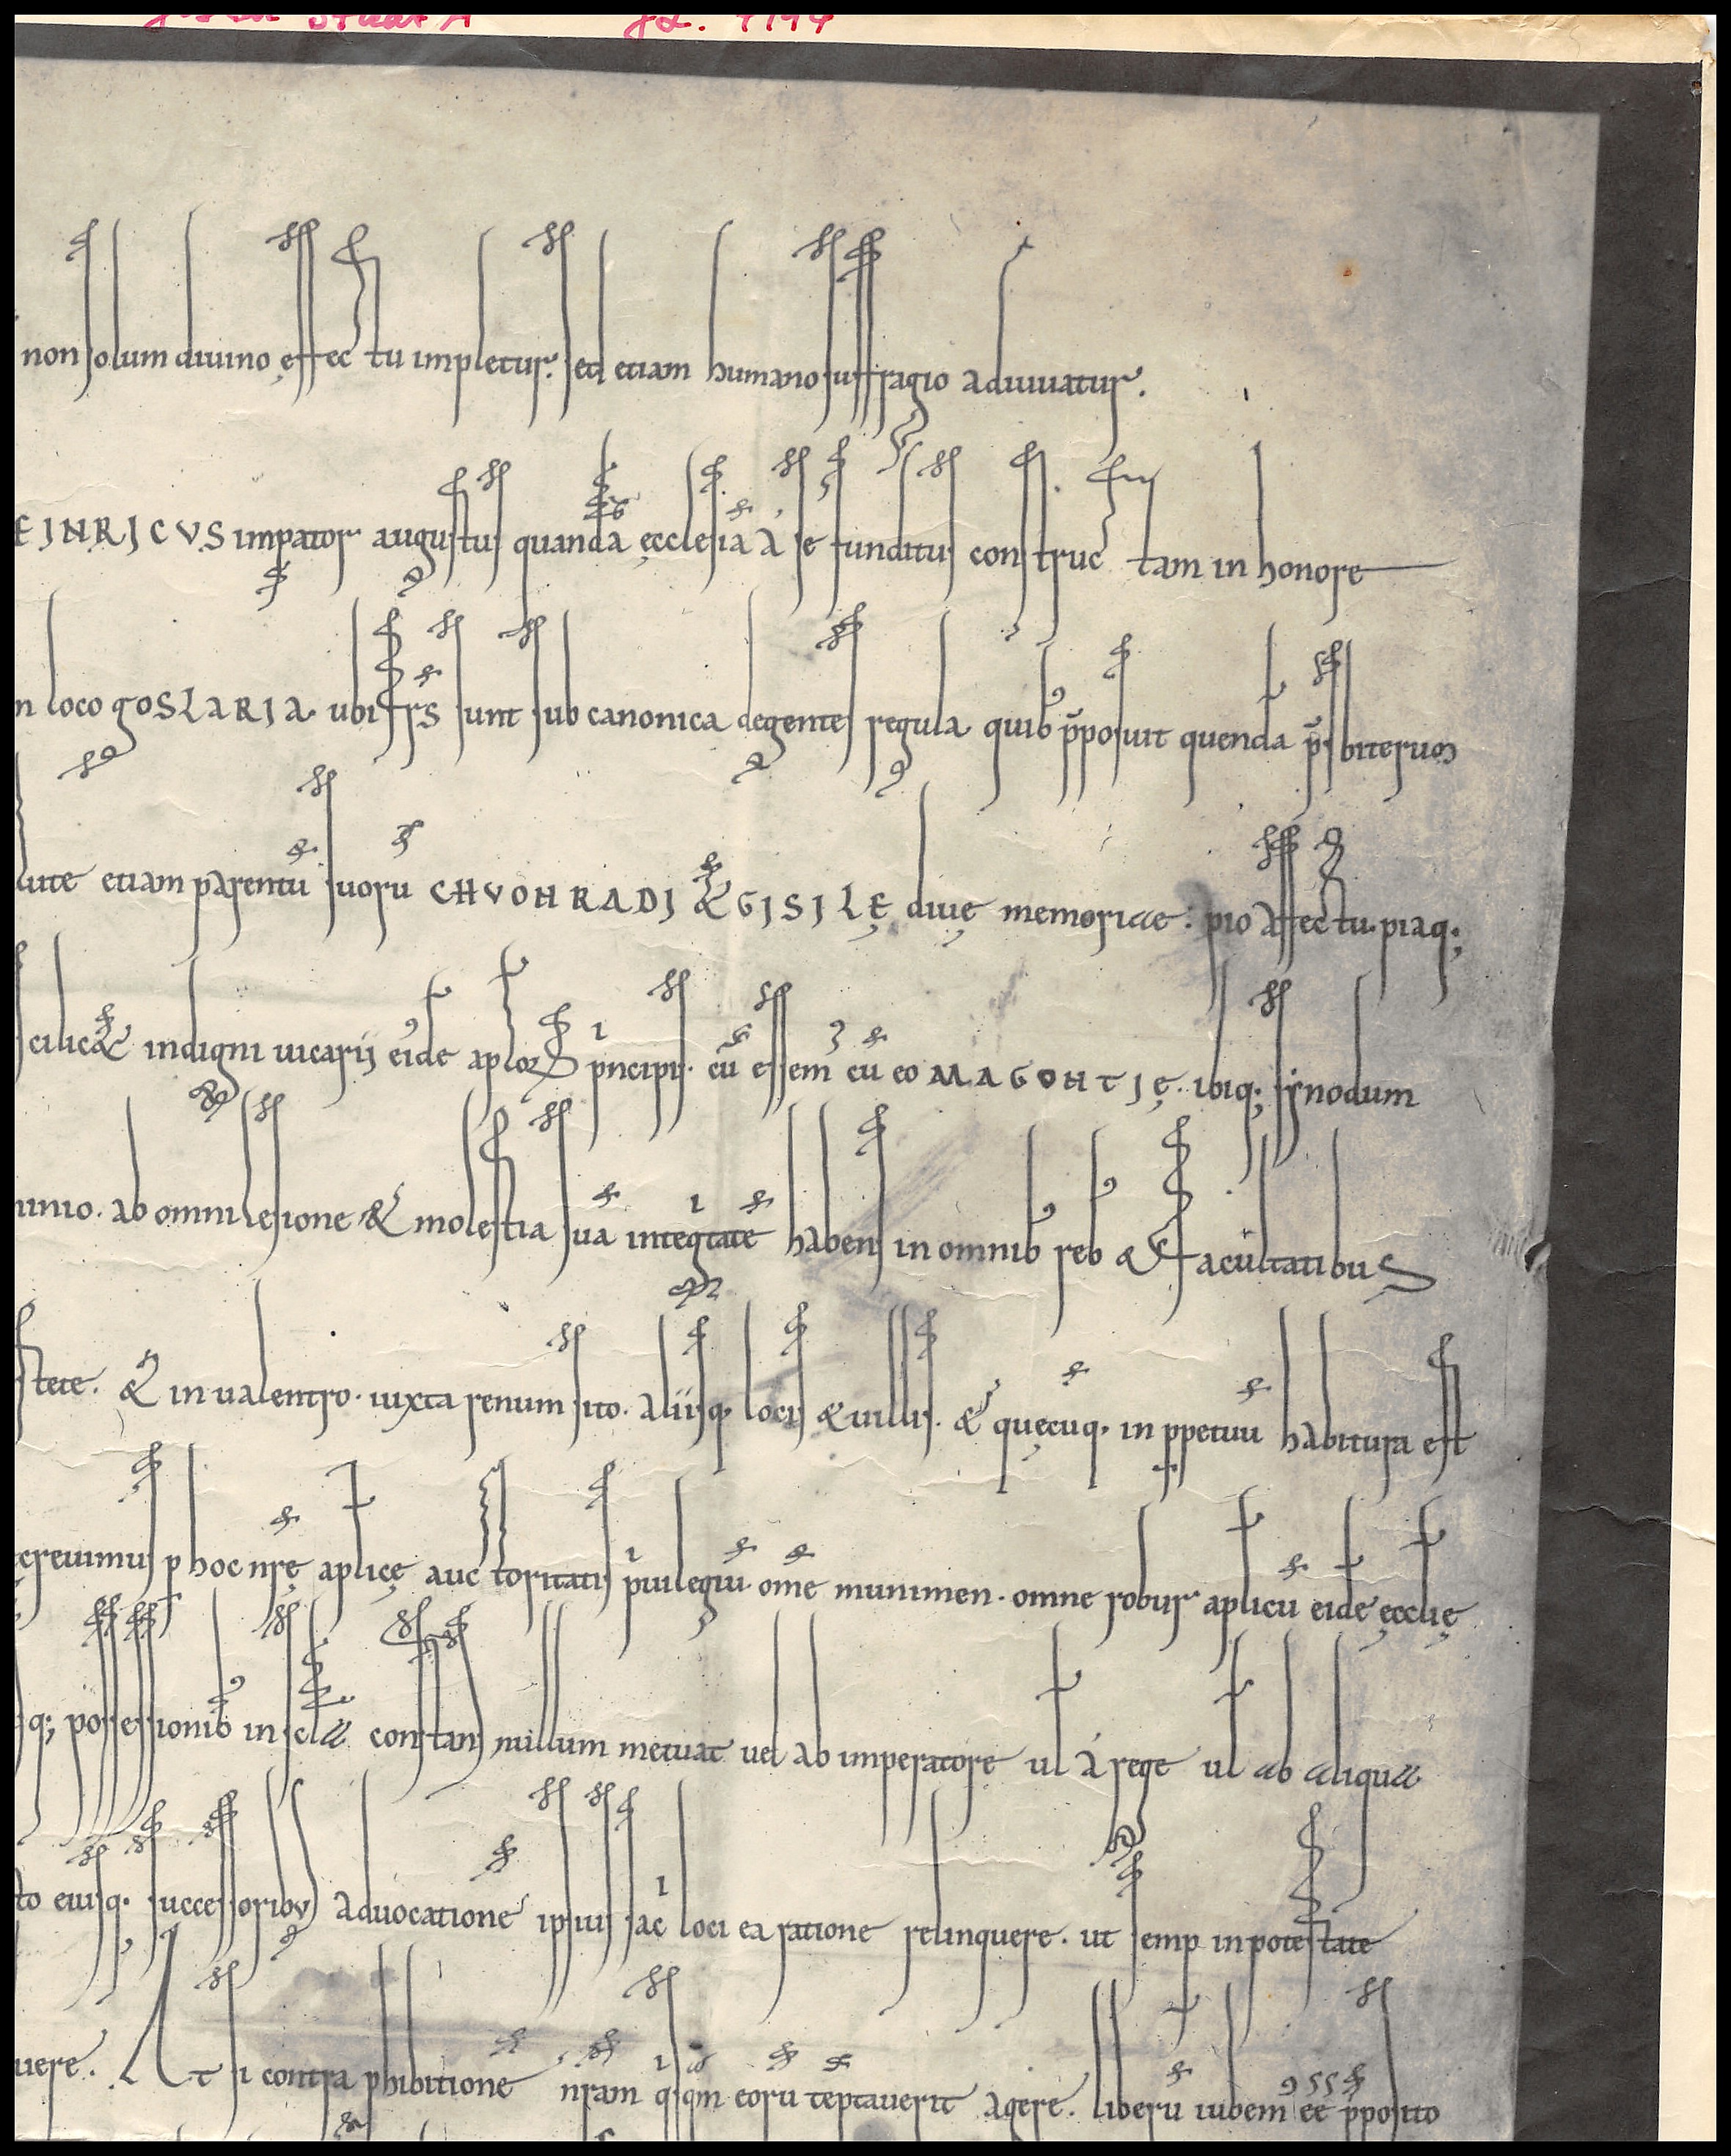 non solum diuino effectu impletur. sed etiam humano suffragio adiuuatur.
EINRICVS impator augustus quandā ęcclesiā à se funditus constructam in honore
n loco GOSLARIA. ubi frs sunt sub canonica degentes regula. quib' p̄posuit quendā p̄sbiterum
lute etiam parentū suorū CHVONRADI & GISILĘ diuę memoriae. pio affectu. piaq;
scilic& indigni uicarij eidē aploꝝ p̄ncipis. cū essem̄ cū eo MAGONTIĘ. ibiq; synodum
ab omni lesione & molestia sua integ̍tatē habens in omnib' reb' & facultatibus
& in ualentro. iuxta renum sito. aliisq. locis & uillis. & quęcūq. in ppetuū habitura est
creuimus p hoc nr̄ę aplicę auctoritatis p̍uilegiū. om̄e munimen. omne robur aplicū eidē ęcclię
q; possessionib' in scła constans nullum metuat uel ab imperatore ul à rege ul ab aliqua
to eiusq. successoribus aduocationē ipsius sac̍ loci ea ratione relinquere. ut semp in potestate
uere. At si contra phibitionē nr̄am q̍sq̄m eorū teptauerit agere. liberū iubem̄ eē p̄posito